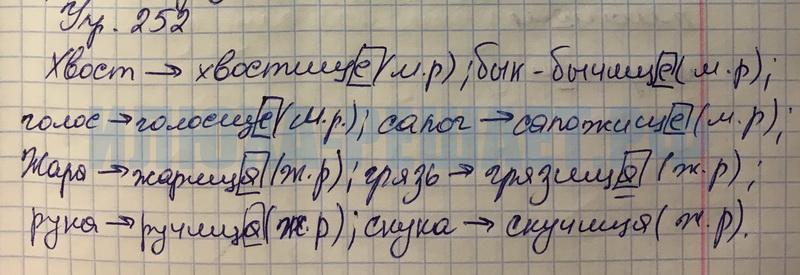 Упр. 252
Хвост → хвостище (м.р); бык - бычище (м.р);
голос → голосище (м.р.); сапог → сапожище (м.р);
Жара → жарища (ж.р); грязь → грязища (ж.р);
рука → ручища (ж.р); скука → скучища (ж.р).